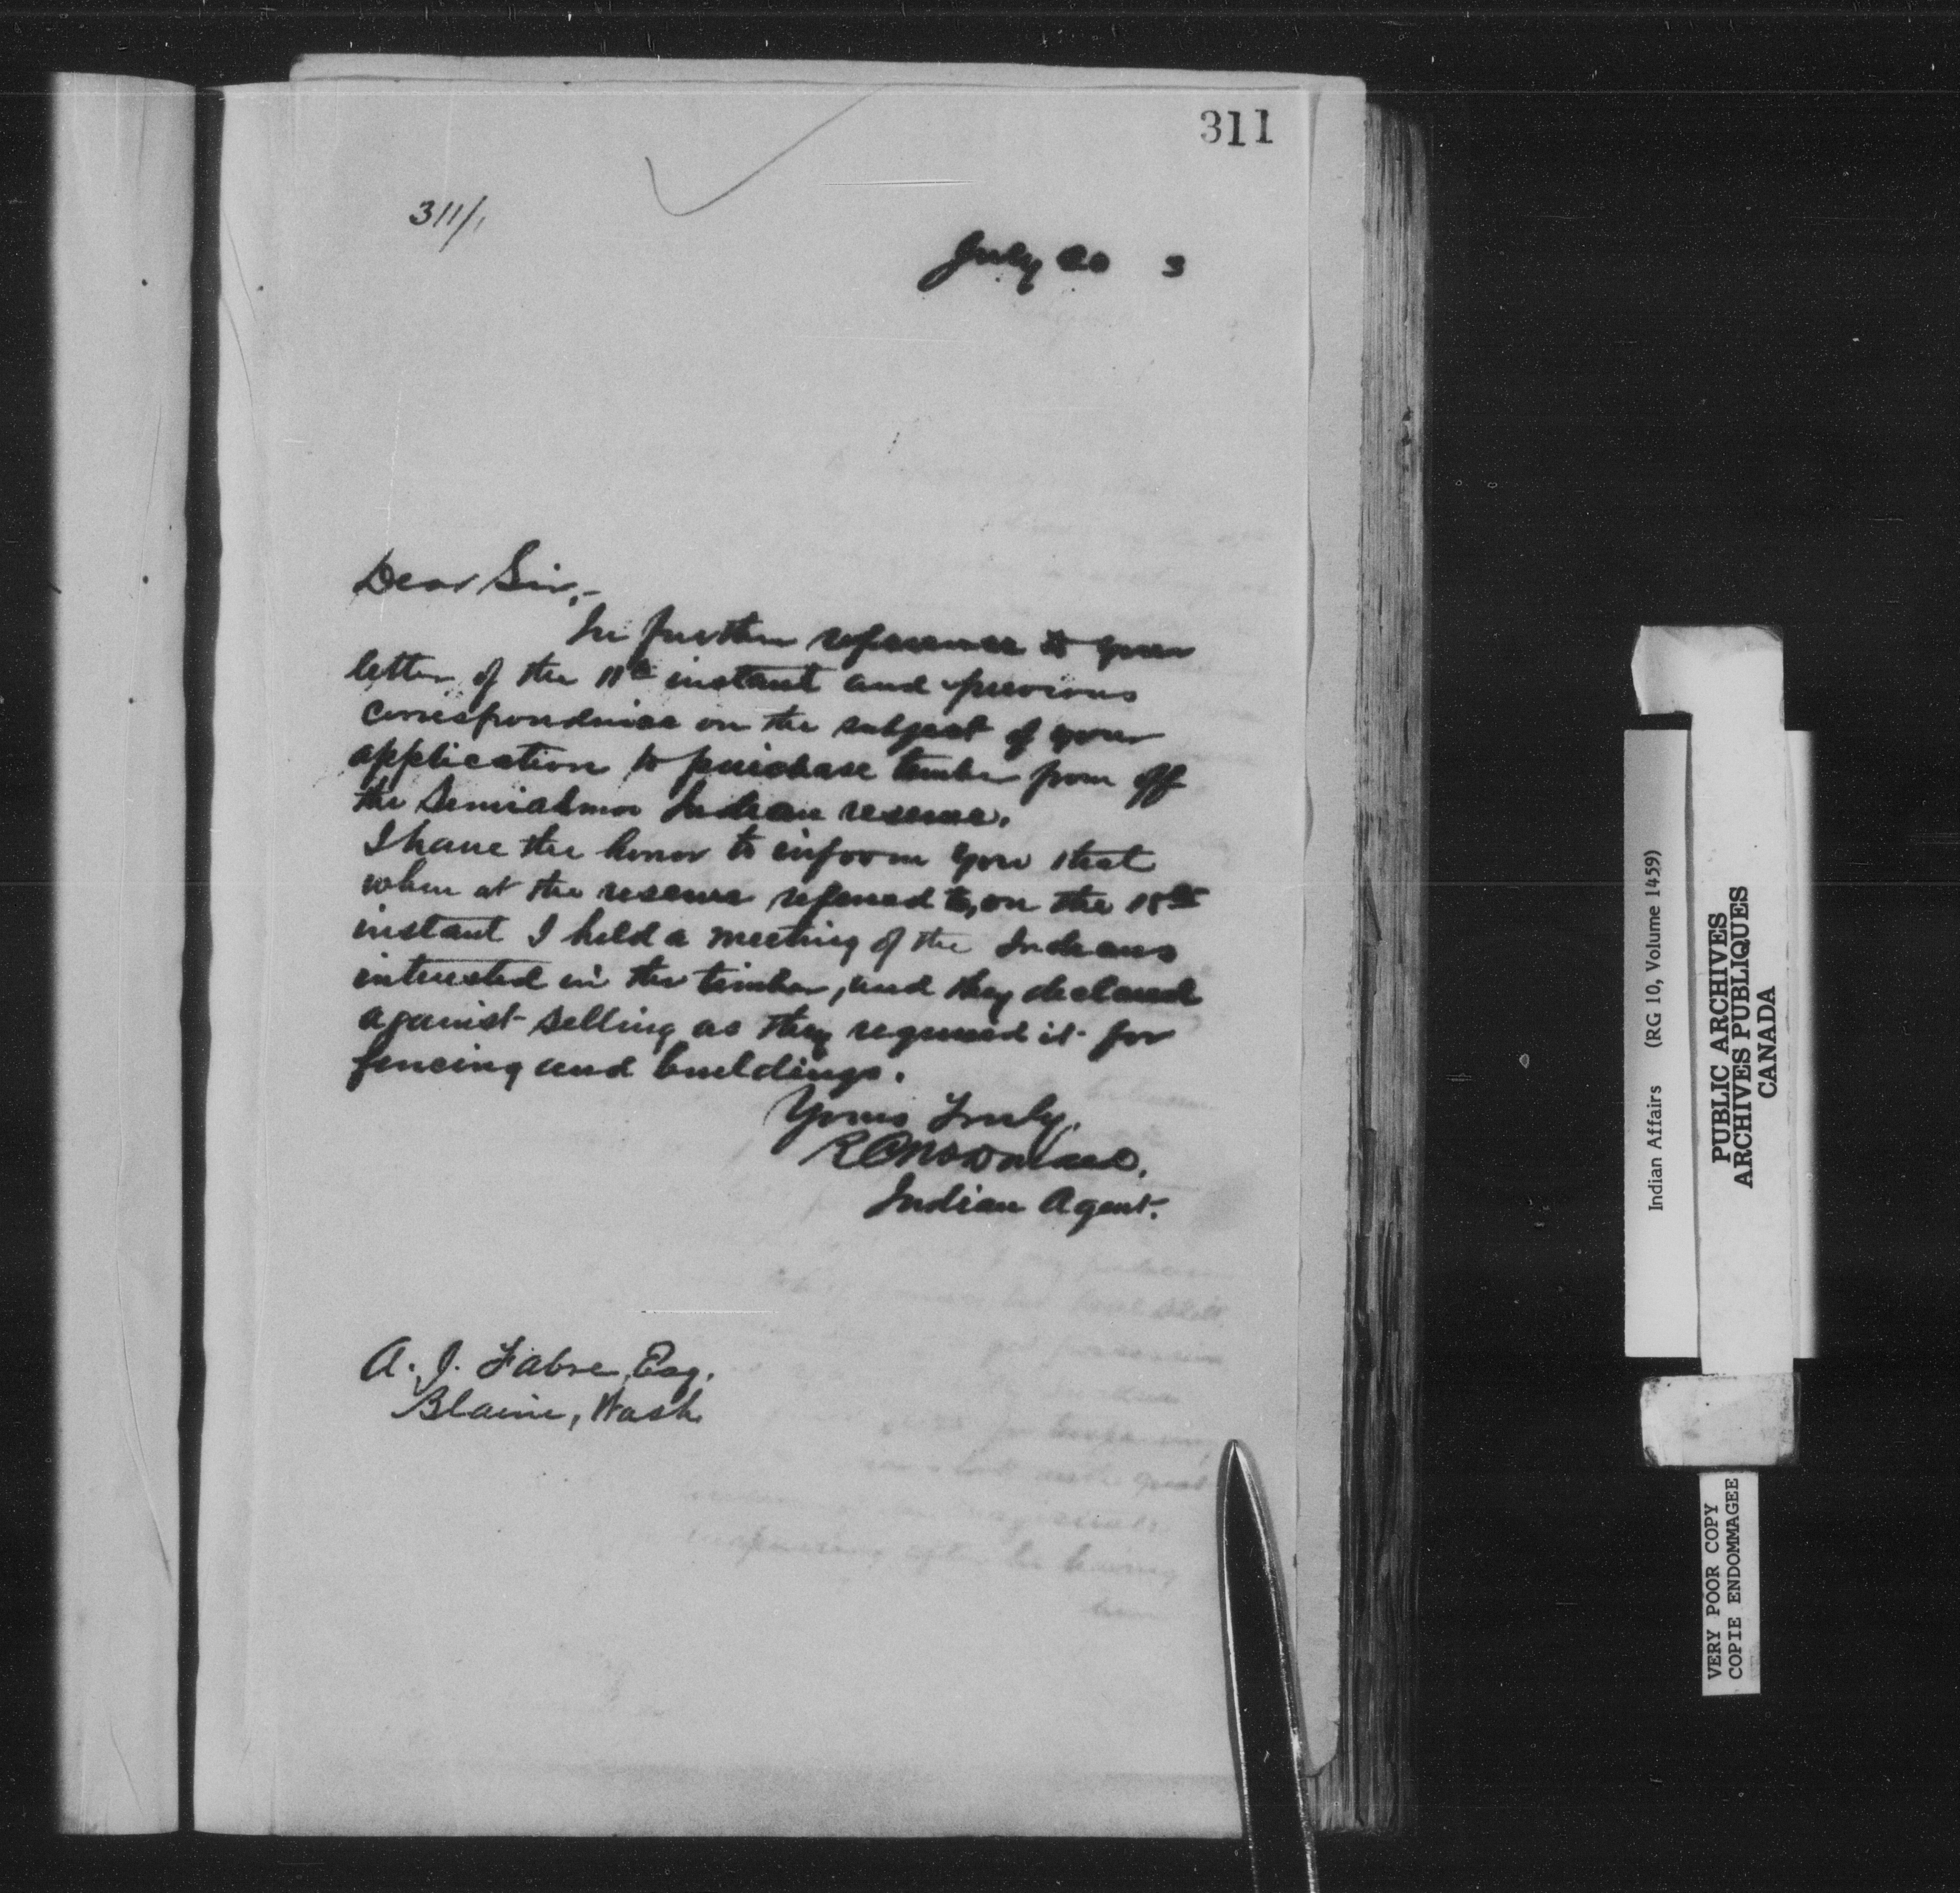 311
311/1
July 20 3
Dear Sir,-
In further reference to your
letter of the 11th instant and previous
correspondence on the subject of your
application to purchase timber from off
the Semiahmoo Indian reserve.
I have the honor to inform you that
when at the reserve referred to, on the 18th
instant I held a meeting of the Indians
interested in the timber, and they declared
against selling as they required it for
fencing and buildings.
Yours Truly,
R C McDonald.
Indian Agent.
A. J. Fabre, Esq.
Blaine, Wash.
Indian Affairs (RG 10, Volume 1459)
PUBLIC ARCHIVES
ARCHIVES PUBLIQUES
CANADA
VERY POOR COPY
COPIE ENDOMMAGEE